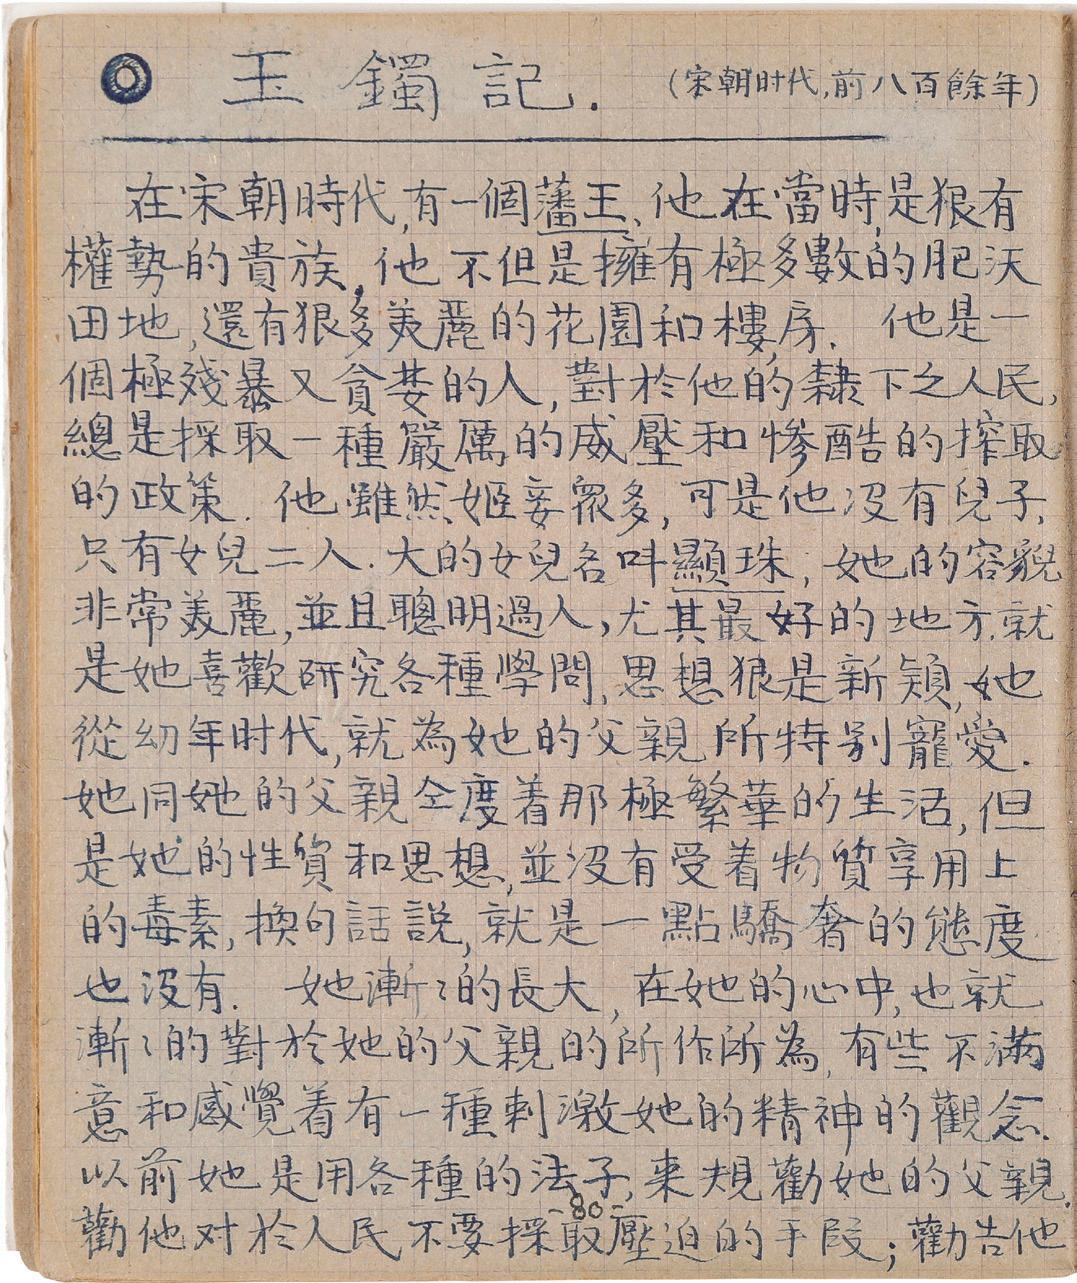 玉鐲記. (宋朝时代,前八百餘年)
在宋朝時代,有一個藩王、他在當時,是狠有
權勢的貴族,他不但是擁有極多數的肥沃
田地,還有狠多美麗的花園和樓房. 他是一
個極殘暴又貧婪的人,對於他的隸下之人民,
總是採取一種嚴厲的威壓和慘酷的搾取
的政策. 他雖然姬妾眾多,可是他沒有兒子,
只有女兒二人.大的女兒名叫顯珠,她的容貌
非常美麗,並且聰明過人,尤其最好的地方,就
是她喜歡研究各種學問,思想狠是新穎,她
從幼年时代,就為她的父親所特别寵愛.
她同她的父親仝度着那極繁華的生活,但
是她的性質和思想,並沒有受着物質享用上
的毒素,換句話說,就是一點驕奢的態度
也沒有. 她漸〻的長大,在她的心中,也就
漸〻的對於她的父親的所作所為,有些不滿
意和感覺着有一種刺激她的精神的觀念.
以前她是用各種的法子,来規勸她的父親.
勸他对於人民不要採取壓迫的手段;勸告他
-80-